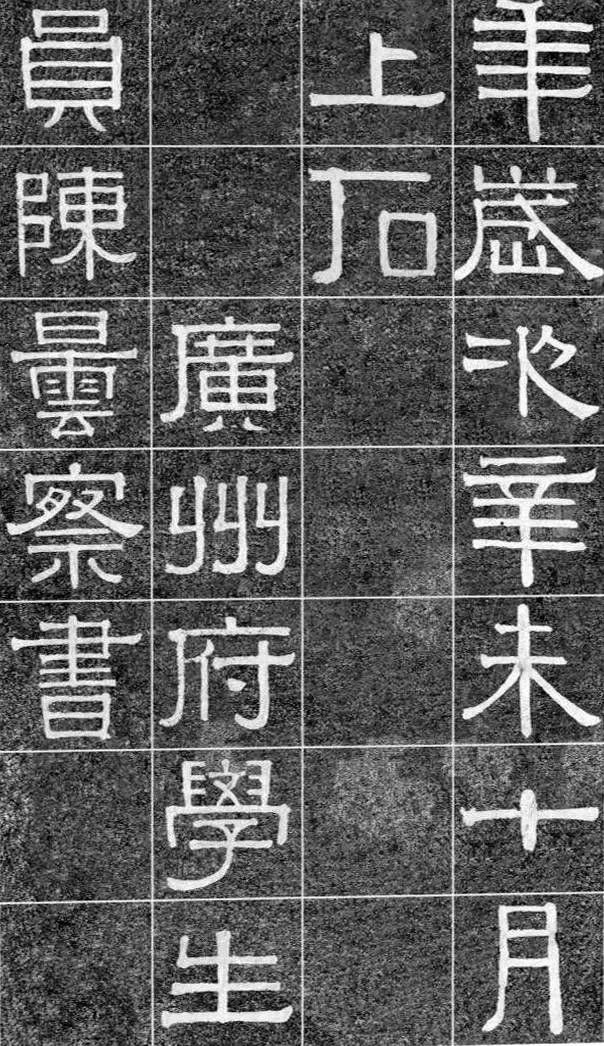 年歲次辛未十月
上石
廣州府學生
員陳曇察書